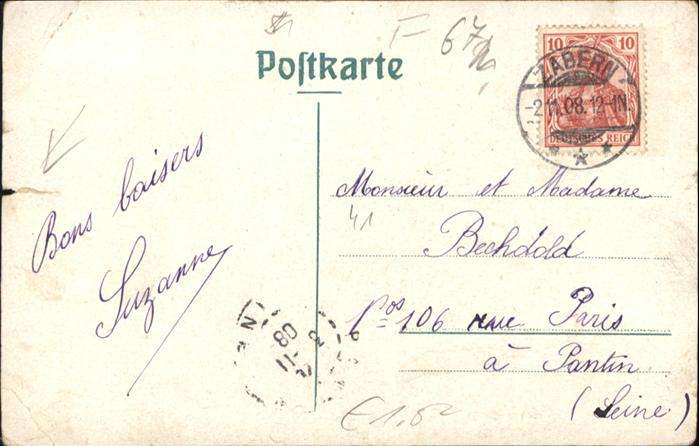 Postkarte
F 67
10 10
ZABERN
-2.11.08.12-1N.
DEUTSCHES REICH
Bons baisers
Suzanne
Monsieur et Madame
41
Bechdold
106 rue Paris
à Pantin
(Seine)
11-08